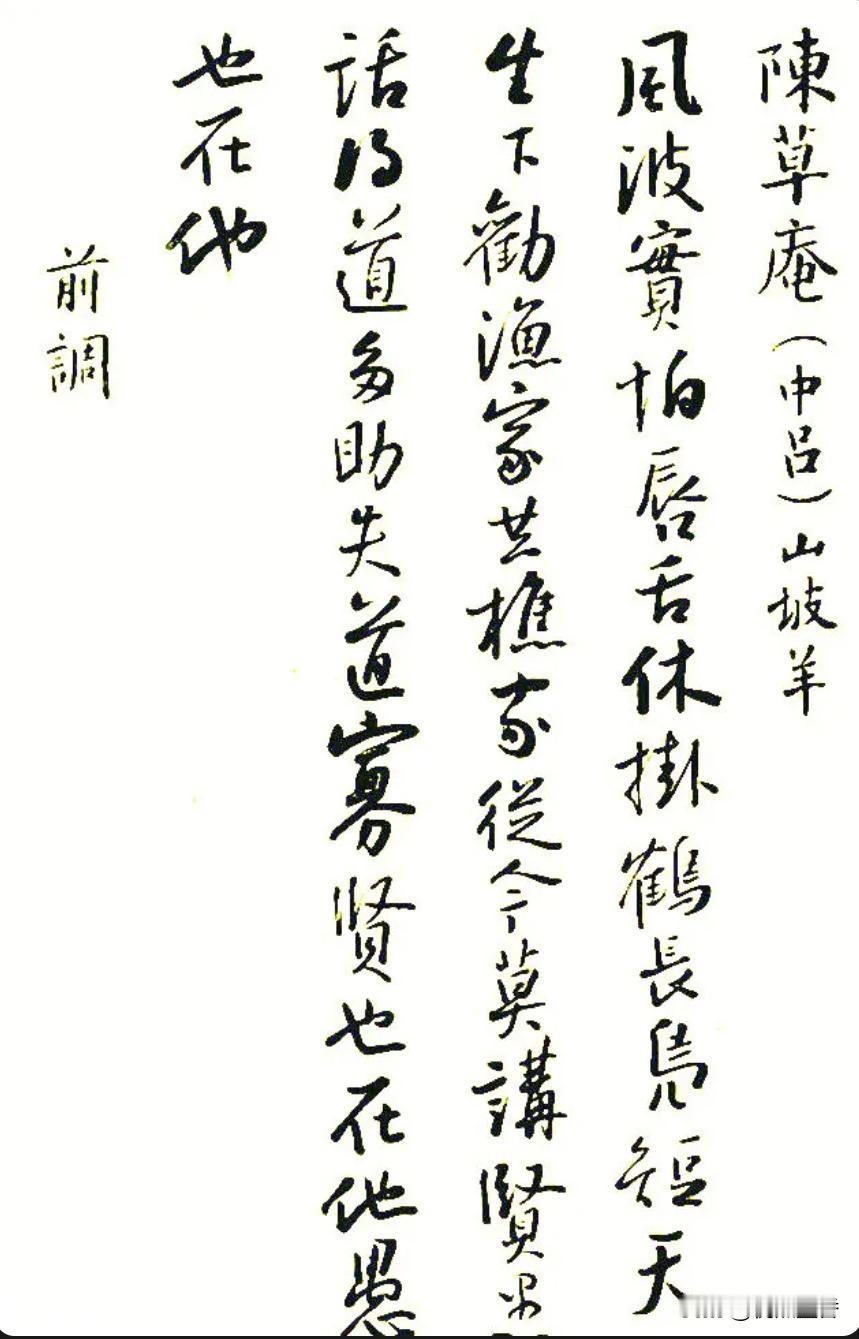 陳草庵（中吕）山坡羊
風波實怕唇舌休掛鶴長鳧短天
生下勸漁家共樵家從今莫講賢愚
話得道多助失道寡賢也在他愚
也在他
前調